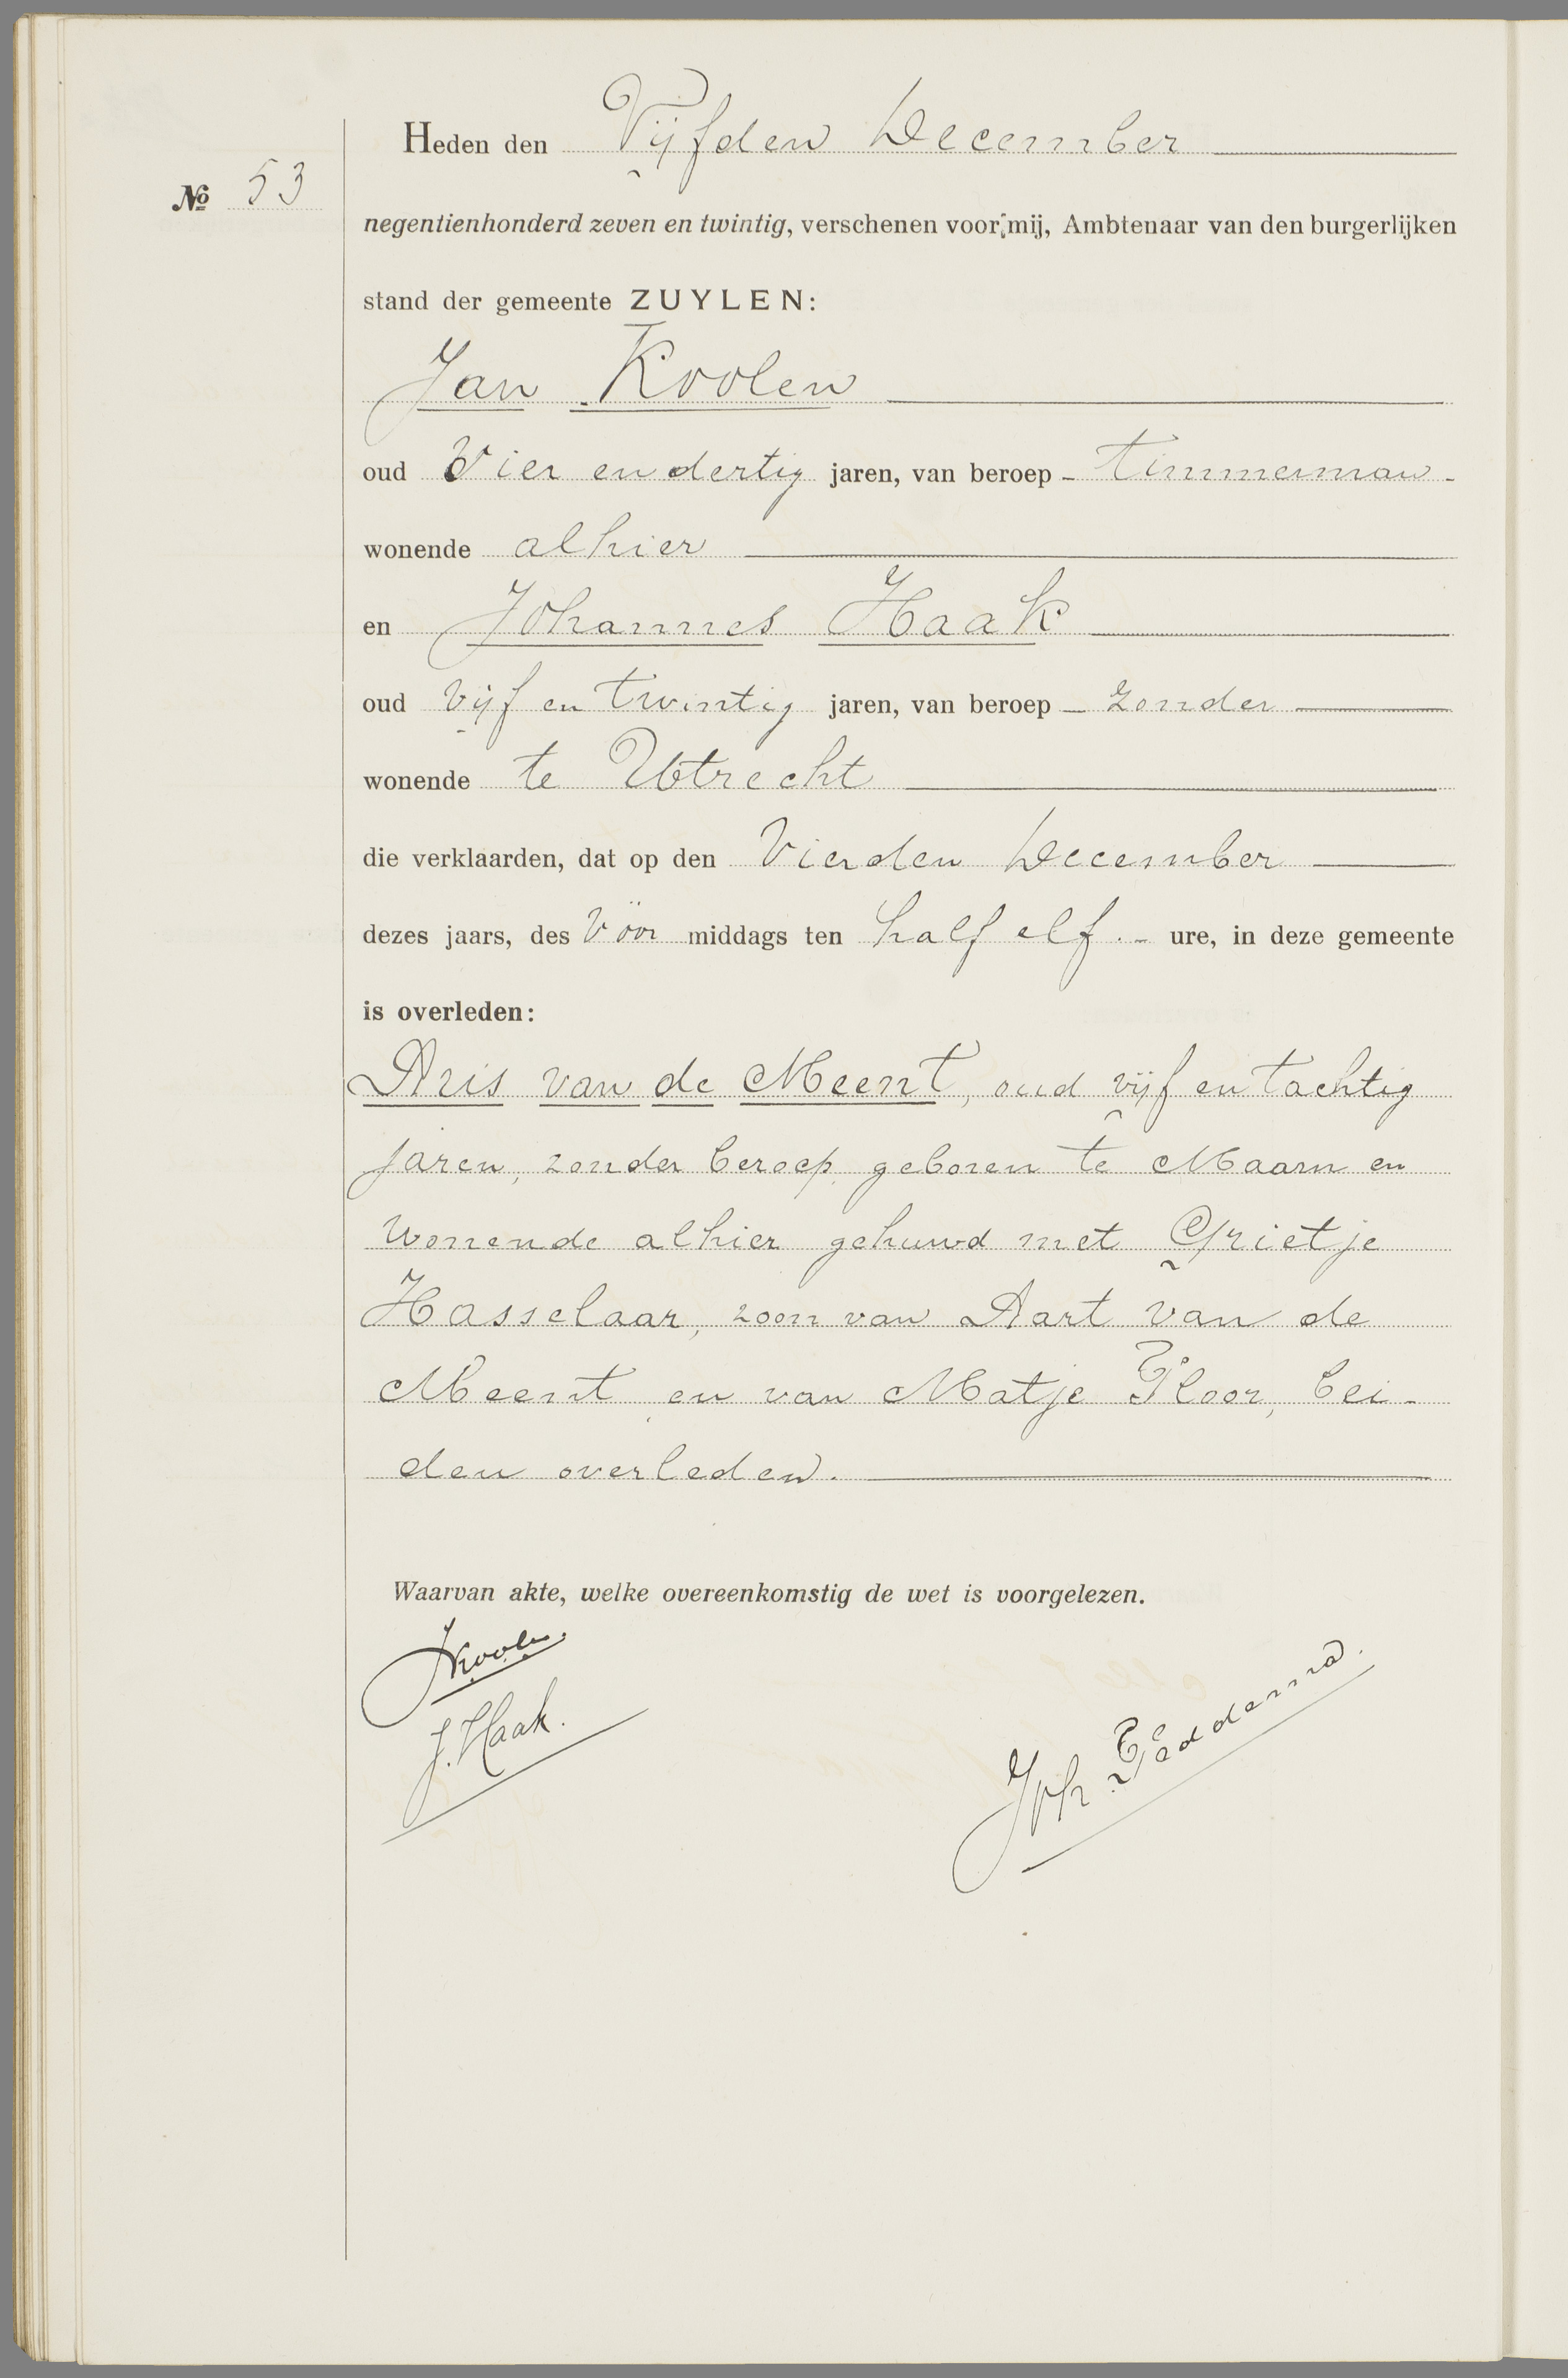 Heden den Vijfden December
No 53
negentienhonderd zeven en twintig, verschenen voor mij, Ambtenaar van den burgerlijken
stand der gemeente ZUYLEN:
Jan Koolen
oud Vier en dertig jaren, van beroep - timmerman -
wonende alhier
en Johannes Haak
oud vijf en twintig jaren, van beroep - zonder
wonende te Utrecht
die verklaarden, dat op den Vierden December
dezes jaars, des Vóór middags ten half elf. - ure, in deze gemeente
is overleden:
Aris van de Meent, oud vijf en tachtig
jaren, zonder beroep, geboren te Maarn en
wonende alhier gehuwd met Grietje
Hasselaar, zoon van Aart van de
Meent en van Matje Ploor, bei-
den overleden.
Waarvan akte, welke overeenkomstig de wet is voorgelezen.
JKoolen.
J. Haak.
Joh